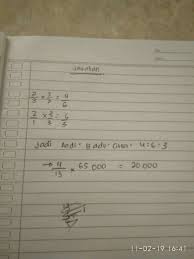 Jawaban
2/3 × 2/2 = 4/6
2/1 × 3/3 = 6/3
Jadi Andi : Badu : Cica = 4 : 6 : 3
→ 4/13 × 65.000 = 20.000
11-02-19 16:41